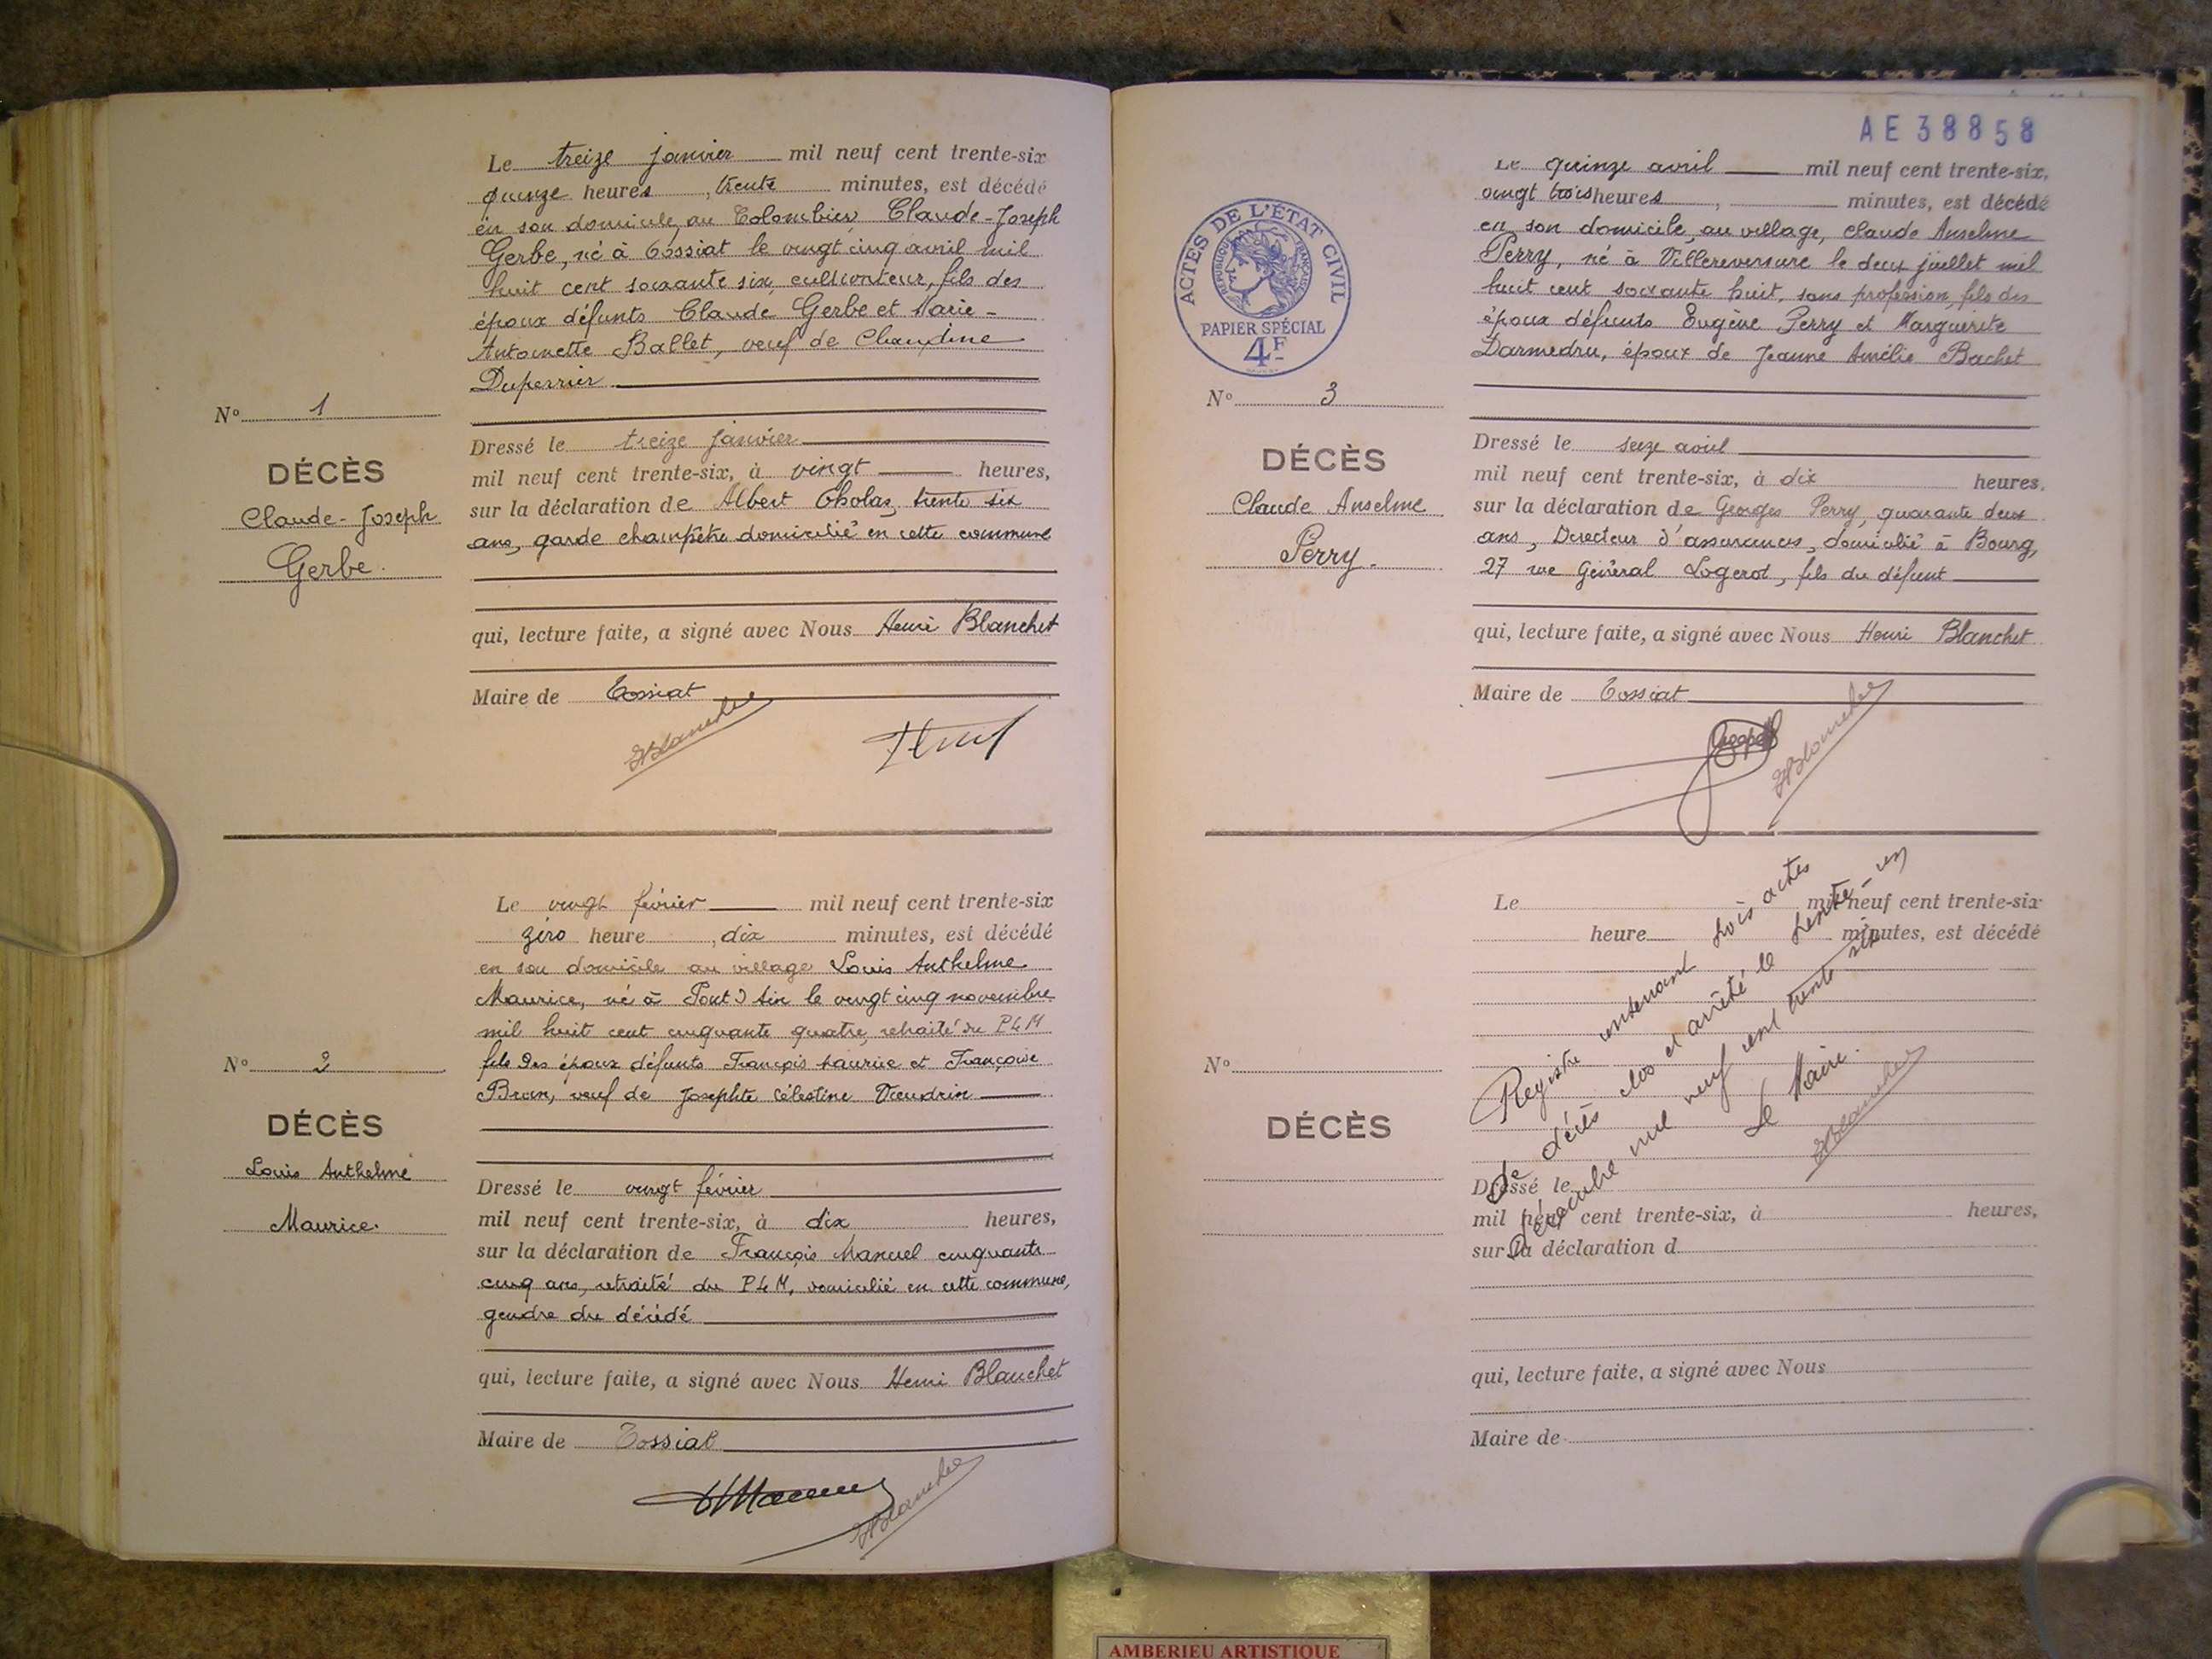 Le treize janvier mil neuf cent trente-six
quinze heures, trente minutes, est décédé
en son domicile, au Colombier, Claude-Joseph
Gerbe, né à Tossiat le vingt cinq avril mil
huit cent soixante six, cultivateur, fils des
époux défunts Claude Gerbe et Marie-
Antoinette Ballet, veuf de Claudine
Duperrier
N° 1
DÉCÈS
Claude-Joseph
Gerbe.
Dressé le treize janvier
mil neuf cent trente-six, à vingt heures,
sur la déclaration de Albert Cholas, trente six
ans, garde champêtre domicilié en cette commune
qui, lecture faite, a signé avec Nous Henri Blanchet
Maire de Tossiat
HBlanchet
Le vingt février mil neuf cent trente-six
zéro heure, dix minutes, est décédé
en son domicile au village Louis Anthelme
Maurice, né à Pont d'Ain le vingt cinq novembre
mil huit cent cinquante quatre, retraité du PLM
fils des époux défunts François Maurice et Françoise
Brun, veuf de Josephte Célestine
N° 2
DÉCÈS
Louis Anthelme
Maurice.
Dressé le vingt février
mil neuf cent trente-six, à dix heures,
sur la déclaration de François Manuel cinquante
cinq ans, retraité du PLM, domicilié en cette commune,
gendre du décédé
qui, lecture faite, a signé avec Nous Henri Blanchet
Maire de Tossiat
HBlanchet
AE38858
Le quinze avril mil neuf cent trente-six,
vingt trois heures, minutes, est décédé
en son domicile, au village, Claude Anselme
Perry, né à Villereversure le deux juillet mil
huit cent soixante huit, sans profession, fils des
époux défunts Eugène Perry et Marguerite
Darmedru, époux de Jeanne Amélie Bachet
ACTES DE L'ÉTAT CIVIL
RÉPUBLIQUE FRANÇAISE
PAPIER SPÉCIAL
4F
N° 3
DÉCÈS
Claude Anselme
Perry.
Dressé le seize avril
mil neuf cent trente-six, à dix heures.
sur la déclaration de Georges Perry, quarante deux
ans, Directeur d'assurances, domicilié à Bourg,
27 rue Général Logerot, fils du défunt
qui, lecture faite, a signé avec Nous Henri Blanchet
Maire de Tossiat
HBlanchet
Le mil neuf cent trente-six
heure minutes, est décédé
N°
DÉCÈS
Dressé le
mil neuf cent trente-six, à heures,
sur la déclaration d
qui, lecture faite, a signé avec Nous
Maire de
Registre contenant trois actes
de décès clos et arrêté le trente-un
Décembre mil neuf cent trente six
Le Maire.
HBlanchet
AMBERIEU ARTISTIQUE